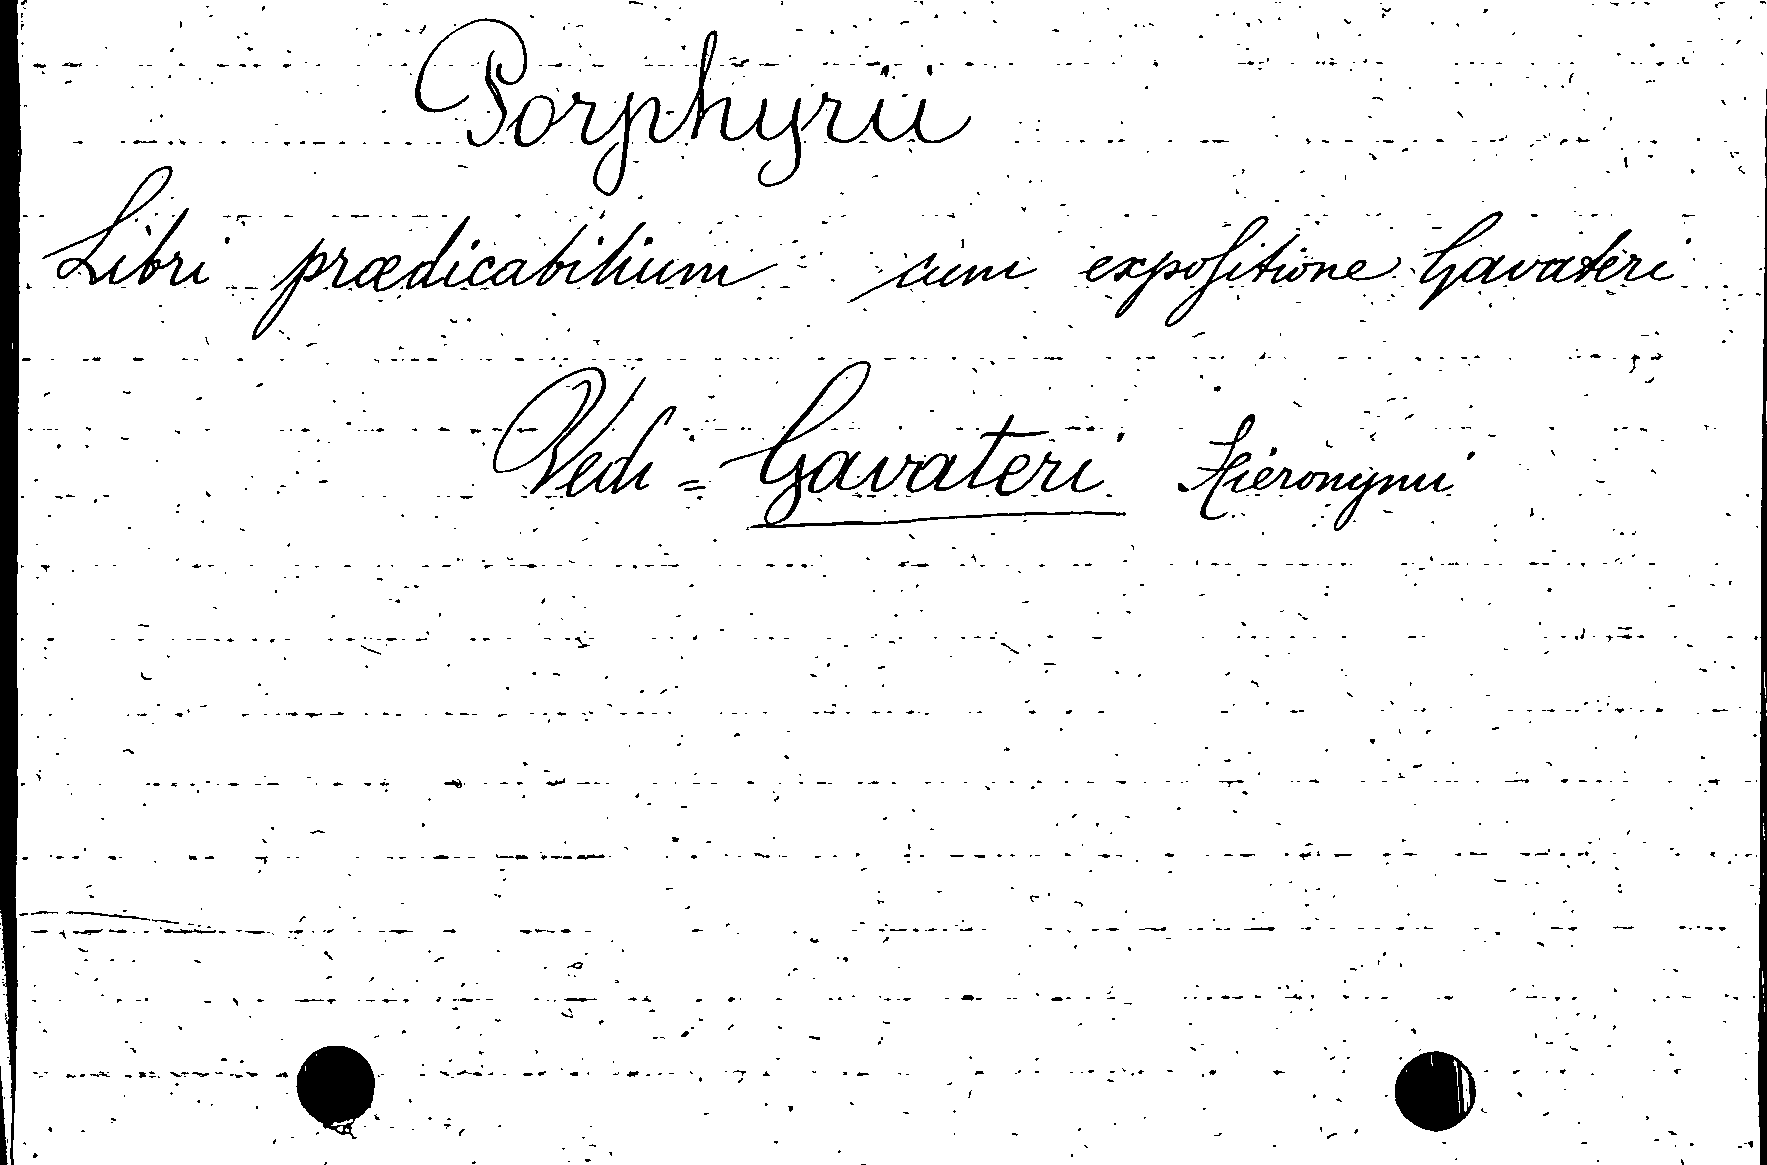 Porphyrii
Libri prædicabilium cum expoſitione Gavateri
Vedi = Gavateri Hieronymi